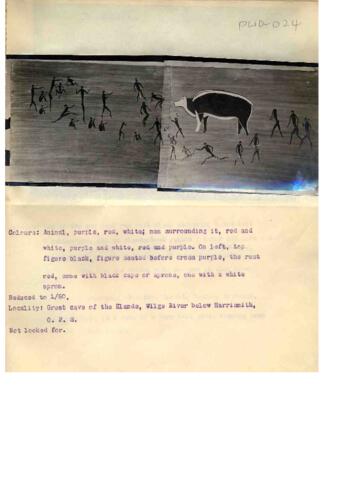 PWD-024
Colours: Animal, purple, red, white; men surrounding it, red and
white, purple and white, red and purple. On left, top
figure black, figure seated before cross purple, the rest
red, some with black caps or aprons, one with a white
apron.
Reduced to 1/60.
Locality: Great cave of the Elands, Wilge River below Harrismith,
O. F. S.
Not looked for.